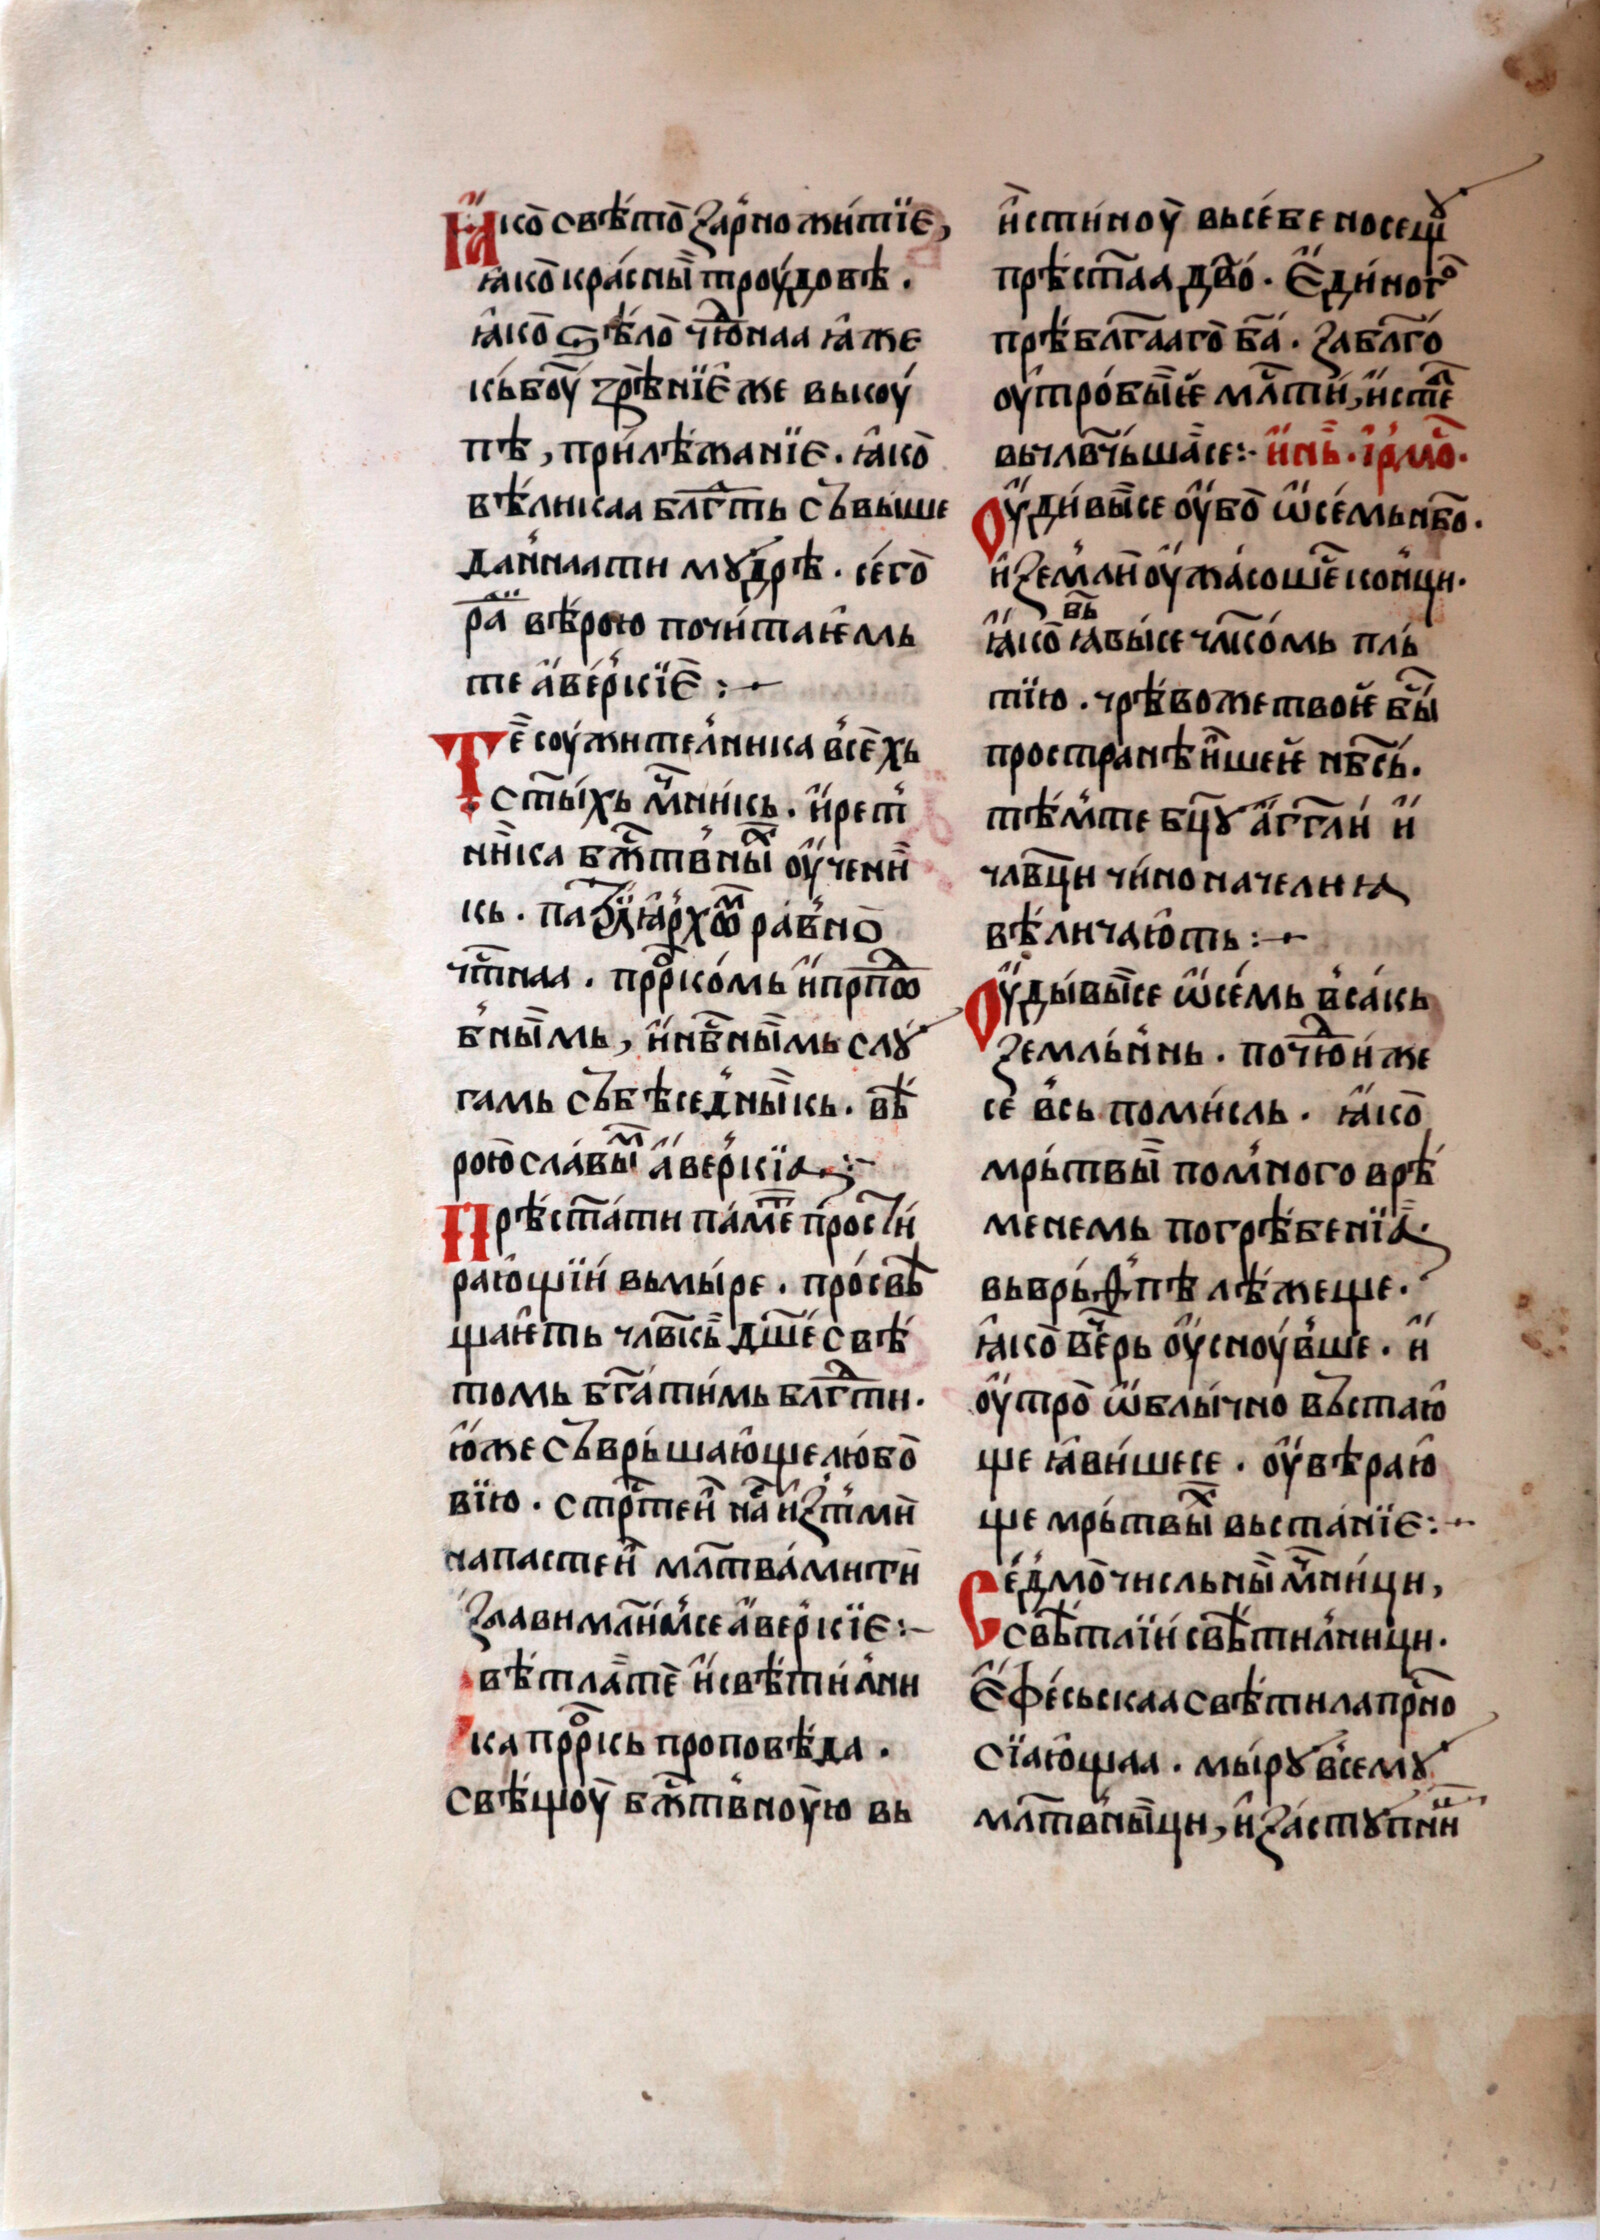 Ꙗ҆ко̑ свѣ́то̑ ꙁа́рно жи́тїѥ,
ꙗ҆ко̑ кра́сныи҆ троу́довѣ .
ꙗ҆ко̑ ѕѣ́ло̑ чⷭ҇тнаа ꙗ҆же
къ́боу̑ ꙁрѣ́нїе҆ же вькоу́
пѣ , при́лѣжанїе . ꙗ҆ко̑
вѣ́ликаа блгⷣть съвыше
да́ннаати мꙋ́дрѣ . се́го̑
ра́ди вѣ́рою почи́таѥ҆мь
те а҆ве́ркїе :~
Те̑ соу́жителника всѐхь
ст҃ы́хь мч҃ни́кь . и҆реті
ни́ка бжⷭ҇тв́ны́хь оу҆чени
кь . патрїа́рхѡмь ра́вно̑
чⷭ҇тнаа . прⷪ҇рко́мь и҆прпⷣо
б́ны́мь , и҆нбⷭ҇ны́мь слꙋ
гамь събѣсе́дны́кь . вѣ́
рою҆ сла́вы́мь а҆ве́ркїа :~
Прѣ́ст҃а́ти па́меть прости́
раю҆щїи́ вьмы́ре . про́свѣ
щаѥ҆ть чл҃вⷭ҇кы́ дш҃е́ свѣ́
томь бг҃а́тимь блгⷣти .
ю҆же съврь́шаю҆ще лю́бо
вїю . стрⷭ҇теи́ на́съ и҆ꙁьми́
напастеи́ мл҃тва́мити́
ꙁлави мл҃и́мсе а҆ве́ркїе :~
вѣ́тла́те и҆свѣ́ти́лни
ка прⷪ҇ркь проповѣ́да .
свѣ́щоу̑ бжⷭ҇тв́ноу́ю вь
и҆сти́ноу̑ высе́бе носещꙋ
прѣ́ст҃аа дв҃о́ . Е҆ди́ного̑
прѣ́бл҃гааго̑ ба́ . ꙁабл҃го́
оу҆тро́бы́е мл҃ти́, и҆сте́бе
вьчл҃вчь́ша́се :~ и҆нь́ . і҆рмо́ .
Оу҆ди́вы́се оу҆бо̑ ѡ҆се́мь нб҃о .
и҆ꙁемли́ оу҆жа́сошесе ко́нци .
ꙗ҆ко̑ бь ꙗ҆вы́се чл҃ко́мь пль́
тїю . чрѣ́вожетвое҆ бы́
простра́нѣ́и́шее҆ нб҃сь́ .
тѣ́мте бц҃ꙋ а҆гг҃ли́ и҆
чл҃вци чи́ноначелиꙗ
вѣ́личаю҆ть :~
Оу҆ды́вы́се ѡ҆се́мь вса́кь
ꙁемль́нь . почюⷣи́же
се всь поми́сль . ꙗ҆ко̑
мрь́твы́ пом́ного врѣ́
менемь погрѣ́бенїа .
вьврь́тпѣ лѣ́жеще .
ꙗ҆ко̑ ве́черь оу҆сноу́вше . и҆
оу҆тро̑ ѡ҆блы́чно въстаю҆
ще ꙗ҆ви́шесе . оу҆вѣраю҆
ще мрь́твы́хь вьста́нїе :~
Се́дмо̑числьны́ мч҃ни́ци ,
свѣ́тлїи́ свѣ́тилници .
Е҆фе́сьскаа свѣ́тила прⷭ҇но
сїаю҆щаа . мы́рꙋ всемꙋ
мл҃тв́ны́ци, и҆ ꙁа́стꙋпни